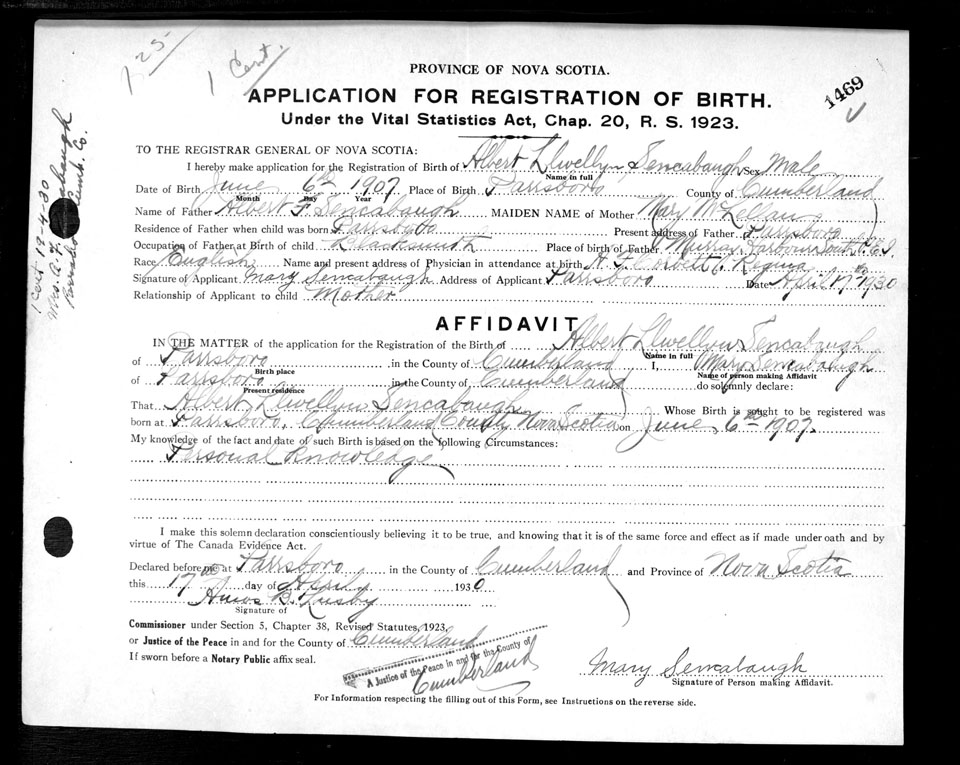 125
1 Cent.
1469
PROVINCE OF NOVA SCOTIA.
APPLICATION FOR REGISTRATION OF BIRTH.
Under the Vital Statistics Act, Chap. 20, R. S. 1923.
TO THE REGISTRAR GENERAL OF NOVA SCOTIA:
I hereby make application for the Registration of Birth of Albert Llwellyn Sencabaugh Sex Male
Name in full
Date of Birth June 6th 1907 Place of Birth Parrsboro County of Cumberland
Month Day Year
Name of Father Albert F. Sencabaugh MAIDEN NAME of Mother Mary McLellan
Residence of Father when child was born Parrsboro Present address of Father Parrsboro
Occupation of Father at Birth of child Blacksmith Place of birth of Father Murray Harbour South P.E.I
Race English Name and present address of Physician in attendance at birth Regina
Signature of Applicant Mary Sencabaugh Address of Applicant Parrsboro Date April 17th 1930
Relationship of Applicant to child Mother
1 Cert 19-4-30
Mrs. A. F. Sencabaugh
Parrsboro Cumb. Co.
AFFIDAVIT
IN THE MATTER of the application for the Registration of the Birth of Albert Llwellyn Sencabaugh
Name in full
of Parrsboro in the County of Cumberland I, Mary Sencabaugh
Birth place Name of person making Affidavit
of Parrsboro in the County of Cumberland do solemnly declare:
Present residence
That Albert Llwellyn Sencabaugh Whose Birth is sought to be registered was
born at Parrsboro, Cumberland County Nova Scotia on June 6th 1907.
My knowledge of the fact and date of such Birth is based on the following Circumstances:
Personal Knowledge
I make this solemn declaration conscientiously believing it to be true, and knowing that it is of the same force and effect as if made under oath and by
virtue of The Canada Evidence Act.
Declared before me at Parrsboro in the County of Cumberland and Province of Nova Scotia
this 17th day of April 1930
Amos B. Lusby
Signature of
Commissioner under Section 5, Chapter 38, Revised Statutes, 1923,
or Justice of the Peace in and for the County of Cumberland
If sworn before a Notary Public affix seal.
A Justice of the Peace in and for the County of
Cumberland
Mary Sencabaugh
Signature of Person making Affidavit.
For Information respecting the filling out of this Form, see Instructions on the reverse side.